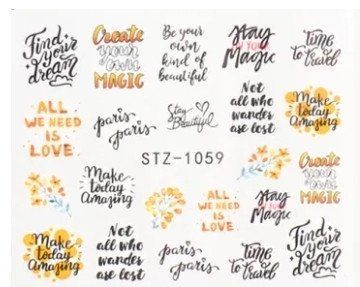 Find
your
dream
Create
your own
MAGIC
Be your
own
kind of
beautiful
Stay
in your
Magic
Time
to travel
ALL
WE NEED
IS
LOVE
paris
paris
Stay
Beautiful
Not
all who
wander
are lost
Make
today
Amazing
STZ-1059
Make
today
Amazing
ALL
WE NEED
IS
LOVE
Stay
in your
Magic
Create
your own
MAGIC
Make
today
Amazing
Not
all who
wander
are lost
paris
paris
Time
to travel
Find
your
dream